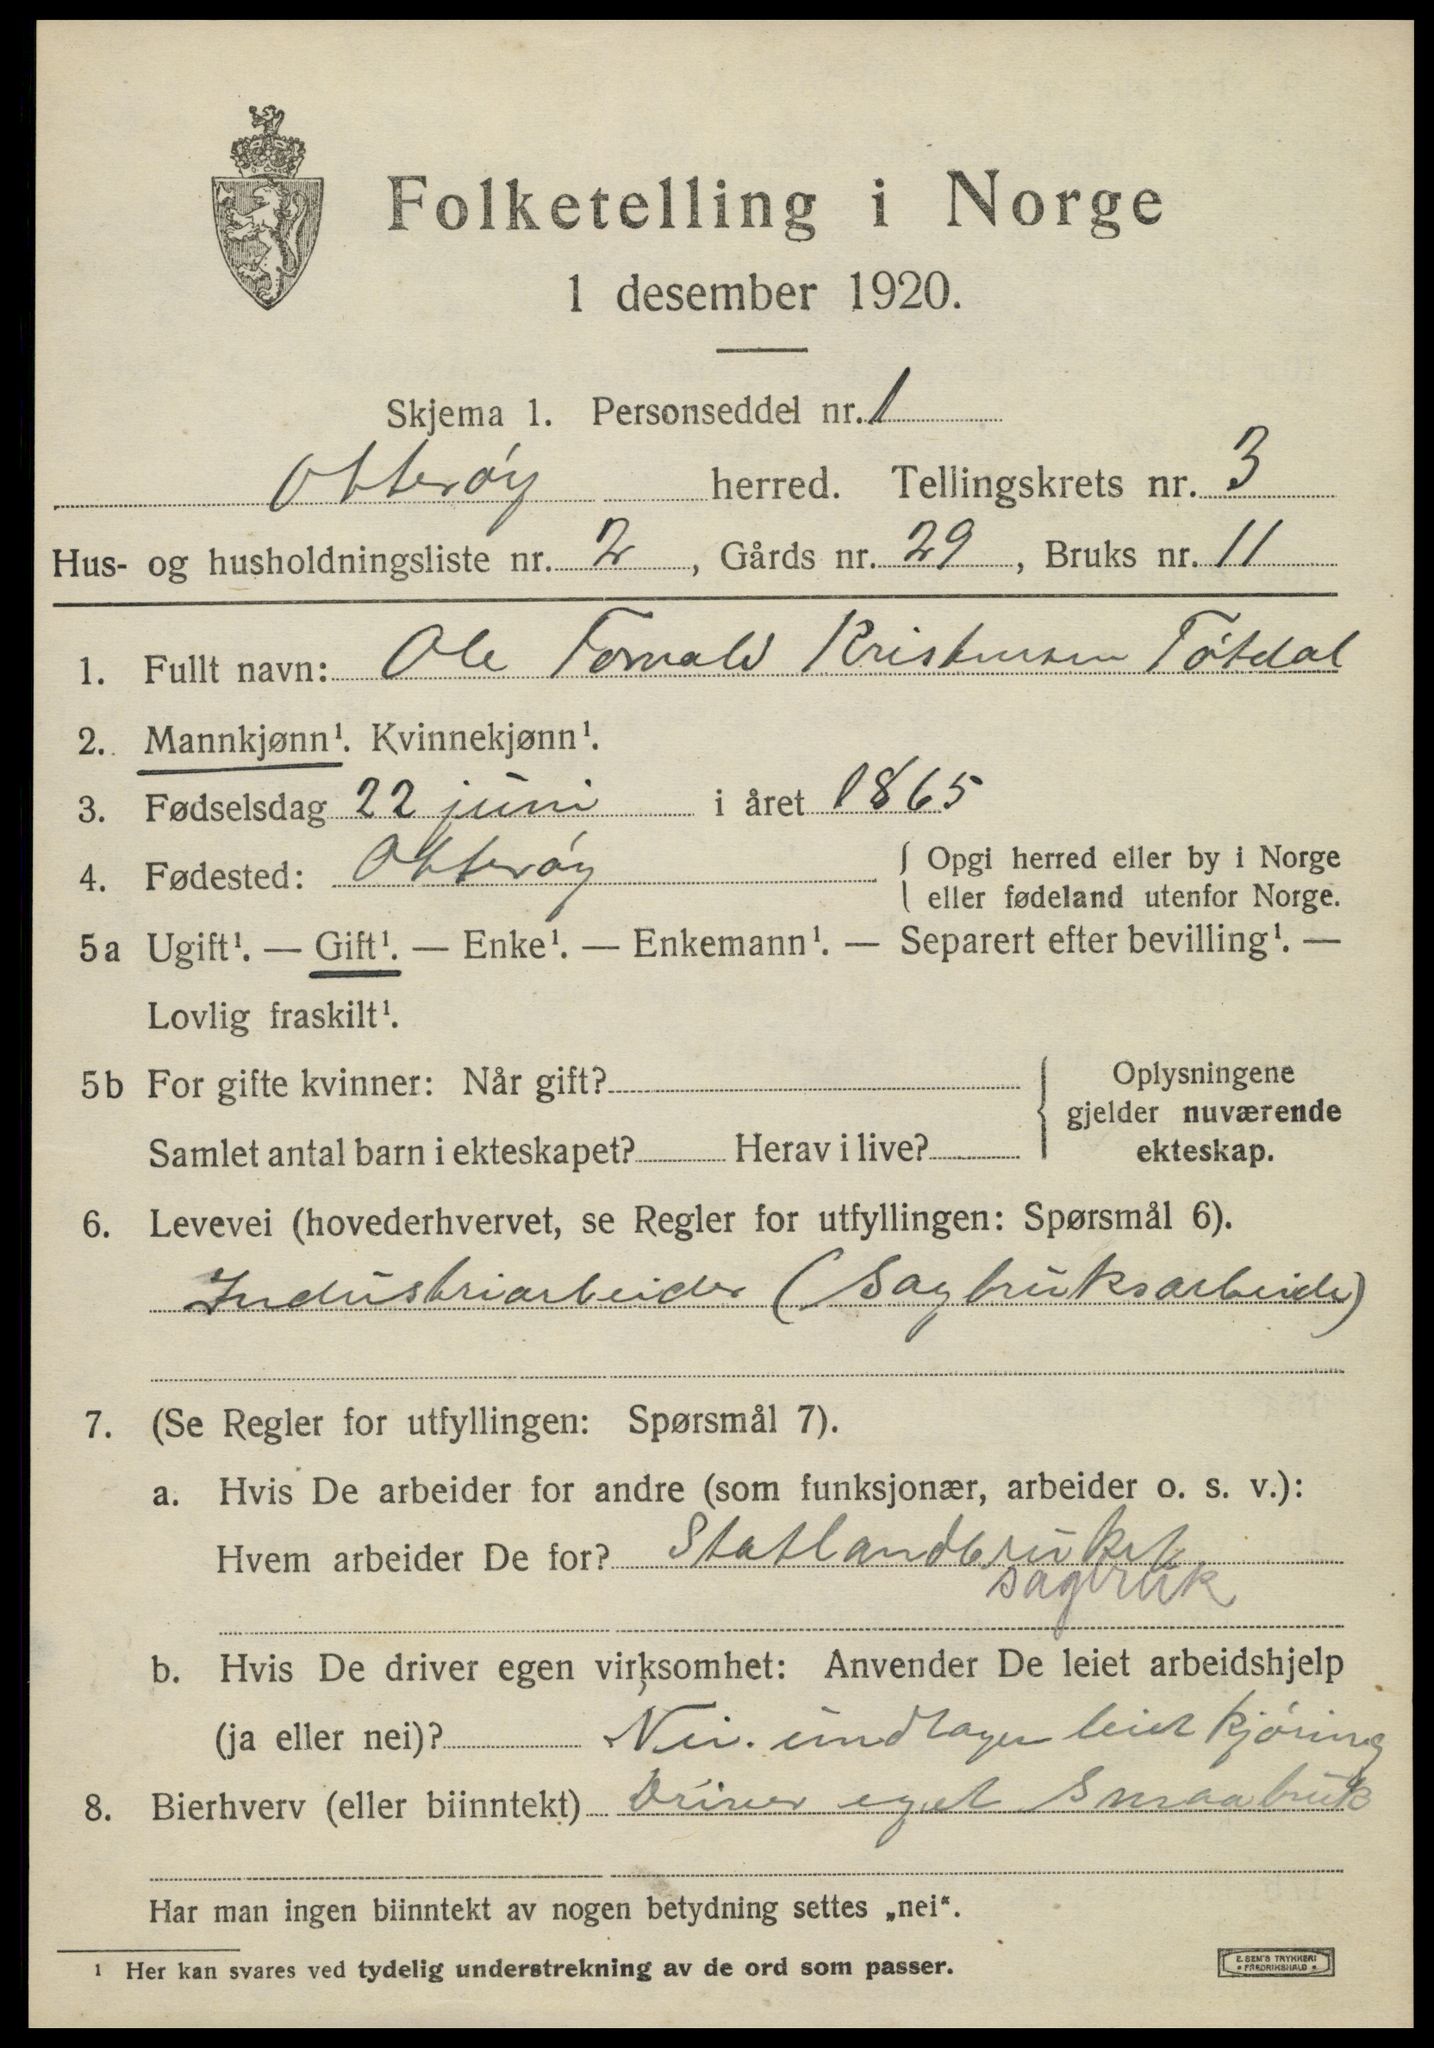 Folketelling i Norge
1 desember 1920.
Skjema 1. Personseddel nr. 1
Otterøy herred. Tellingskrets nr. 3
Hus- og husholdningsliste nr. 2, Gårds nr. 29, Bruks nr. 11
1. Fullt navn: Ole Kristensen Tøtdal
2. Mannkjønn¹. Kvinnekjønn¹.
3. Fødselsdag 22 juni i året 1865
4. Fødested: Otterøy { Opgi herred eller by i Norge
eller fødeland utenfor Norge.
5a Ugift¹. — Gift¹. — Enke¹. — Enkemann¹. — Separert efter bevilling¹. —
Lovlig fraskilt¹.
5b For gifte kvinner: Når gift? { Oplysningene
gjelder nuværende
Samlet antal barn i ekteskapet? Herav i live? ekteskap.
6. Levevei (hovederhvervet, se Regler for utfyllingen: Spørsmål 6).
Industriarbeider (Sagbruksarbeider)
7. (Se Regler for utfyllingen: Spørsmål 7).
a. Hvis De arbeider for andre (som funksjonær, arbeider o. s. v.):
Hvem arbeider De for? Statlandbruket
sagbruk
b. Hvis De driver egen virksomhet: Anvender De leiet arbeidshjelp
(ja eller nei)? Nei. undtagen leiet kjøring
8. Bierhverv (eller biinntekt) Driver eget Smaabruk
Har man ingen biinntekt av nogen betydning settes „nei“.
¹ Her kan svares ved tydelig understrekning av de ord som passer.
E. SEM'S TRYKKERI
FREDRIKSHALD